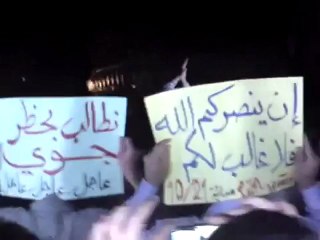 إن ينصركم الله
فلا غالب لكم
نطالب بحظر
جوي
عاجل عاجل عاجل